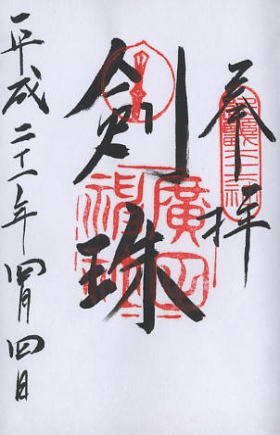 奉拝
剣珠
廣田
平成二十一年四月四日